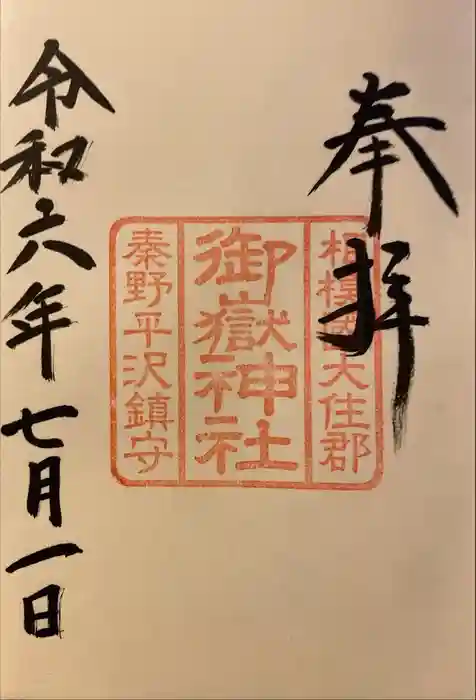 奉拝
相模國大住郡
御嶽神社
秦野平沢鎮守
令和六年七月一日